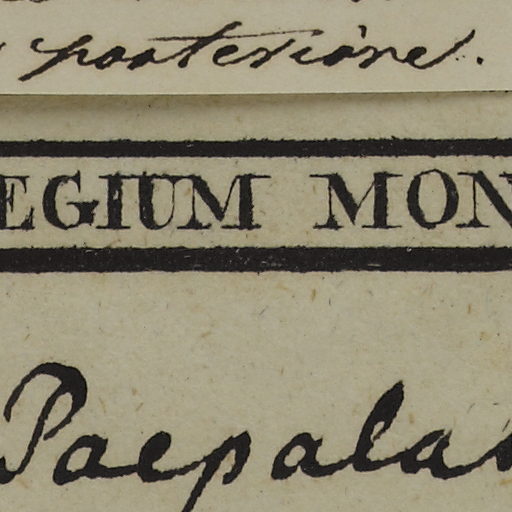 posteriore.
EGIUM MON
Paepalan